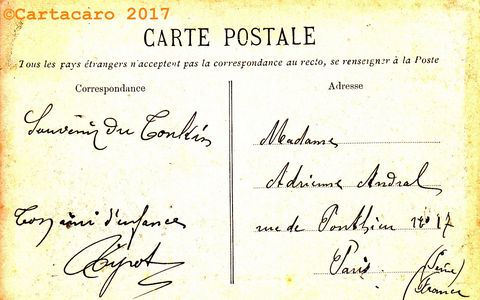 ©Cartacaro 2017
CARTE POSTALE
Tous les pays étrangers n'acceptent pas la correspondance au recto, se renseigner à la Poste
Correspondance
Souvenir du Tonkin
Ton ami d'enfance
Adresse
Madame
Adrienne Andral
rue de Ponthieu no 17
Paris (Seine)
(France